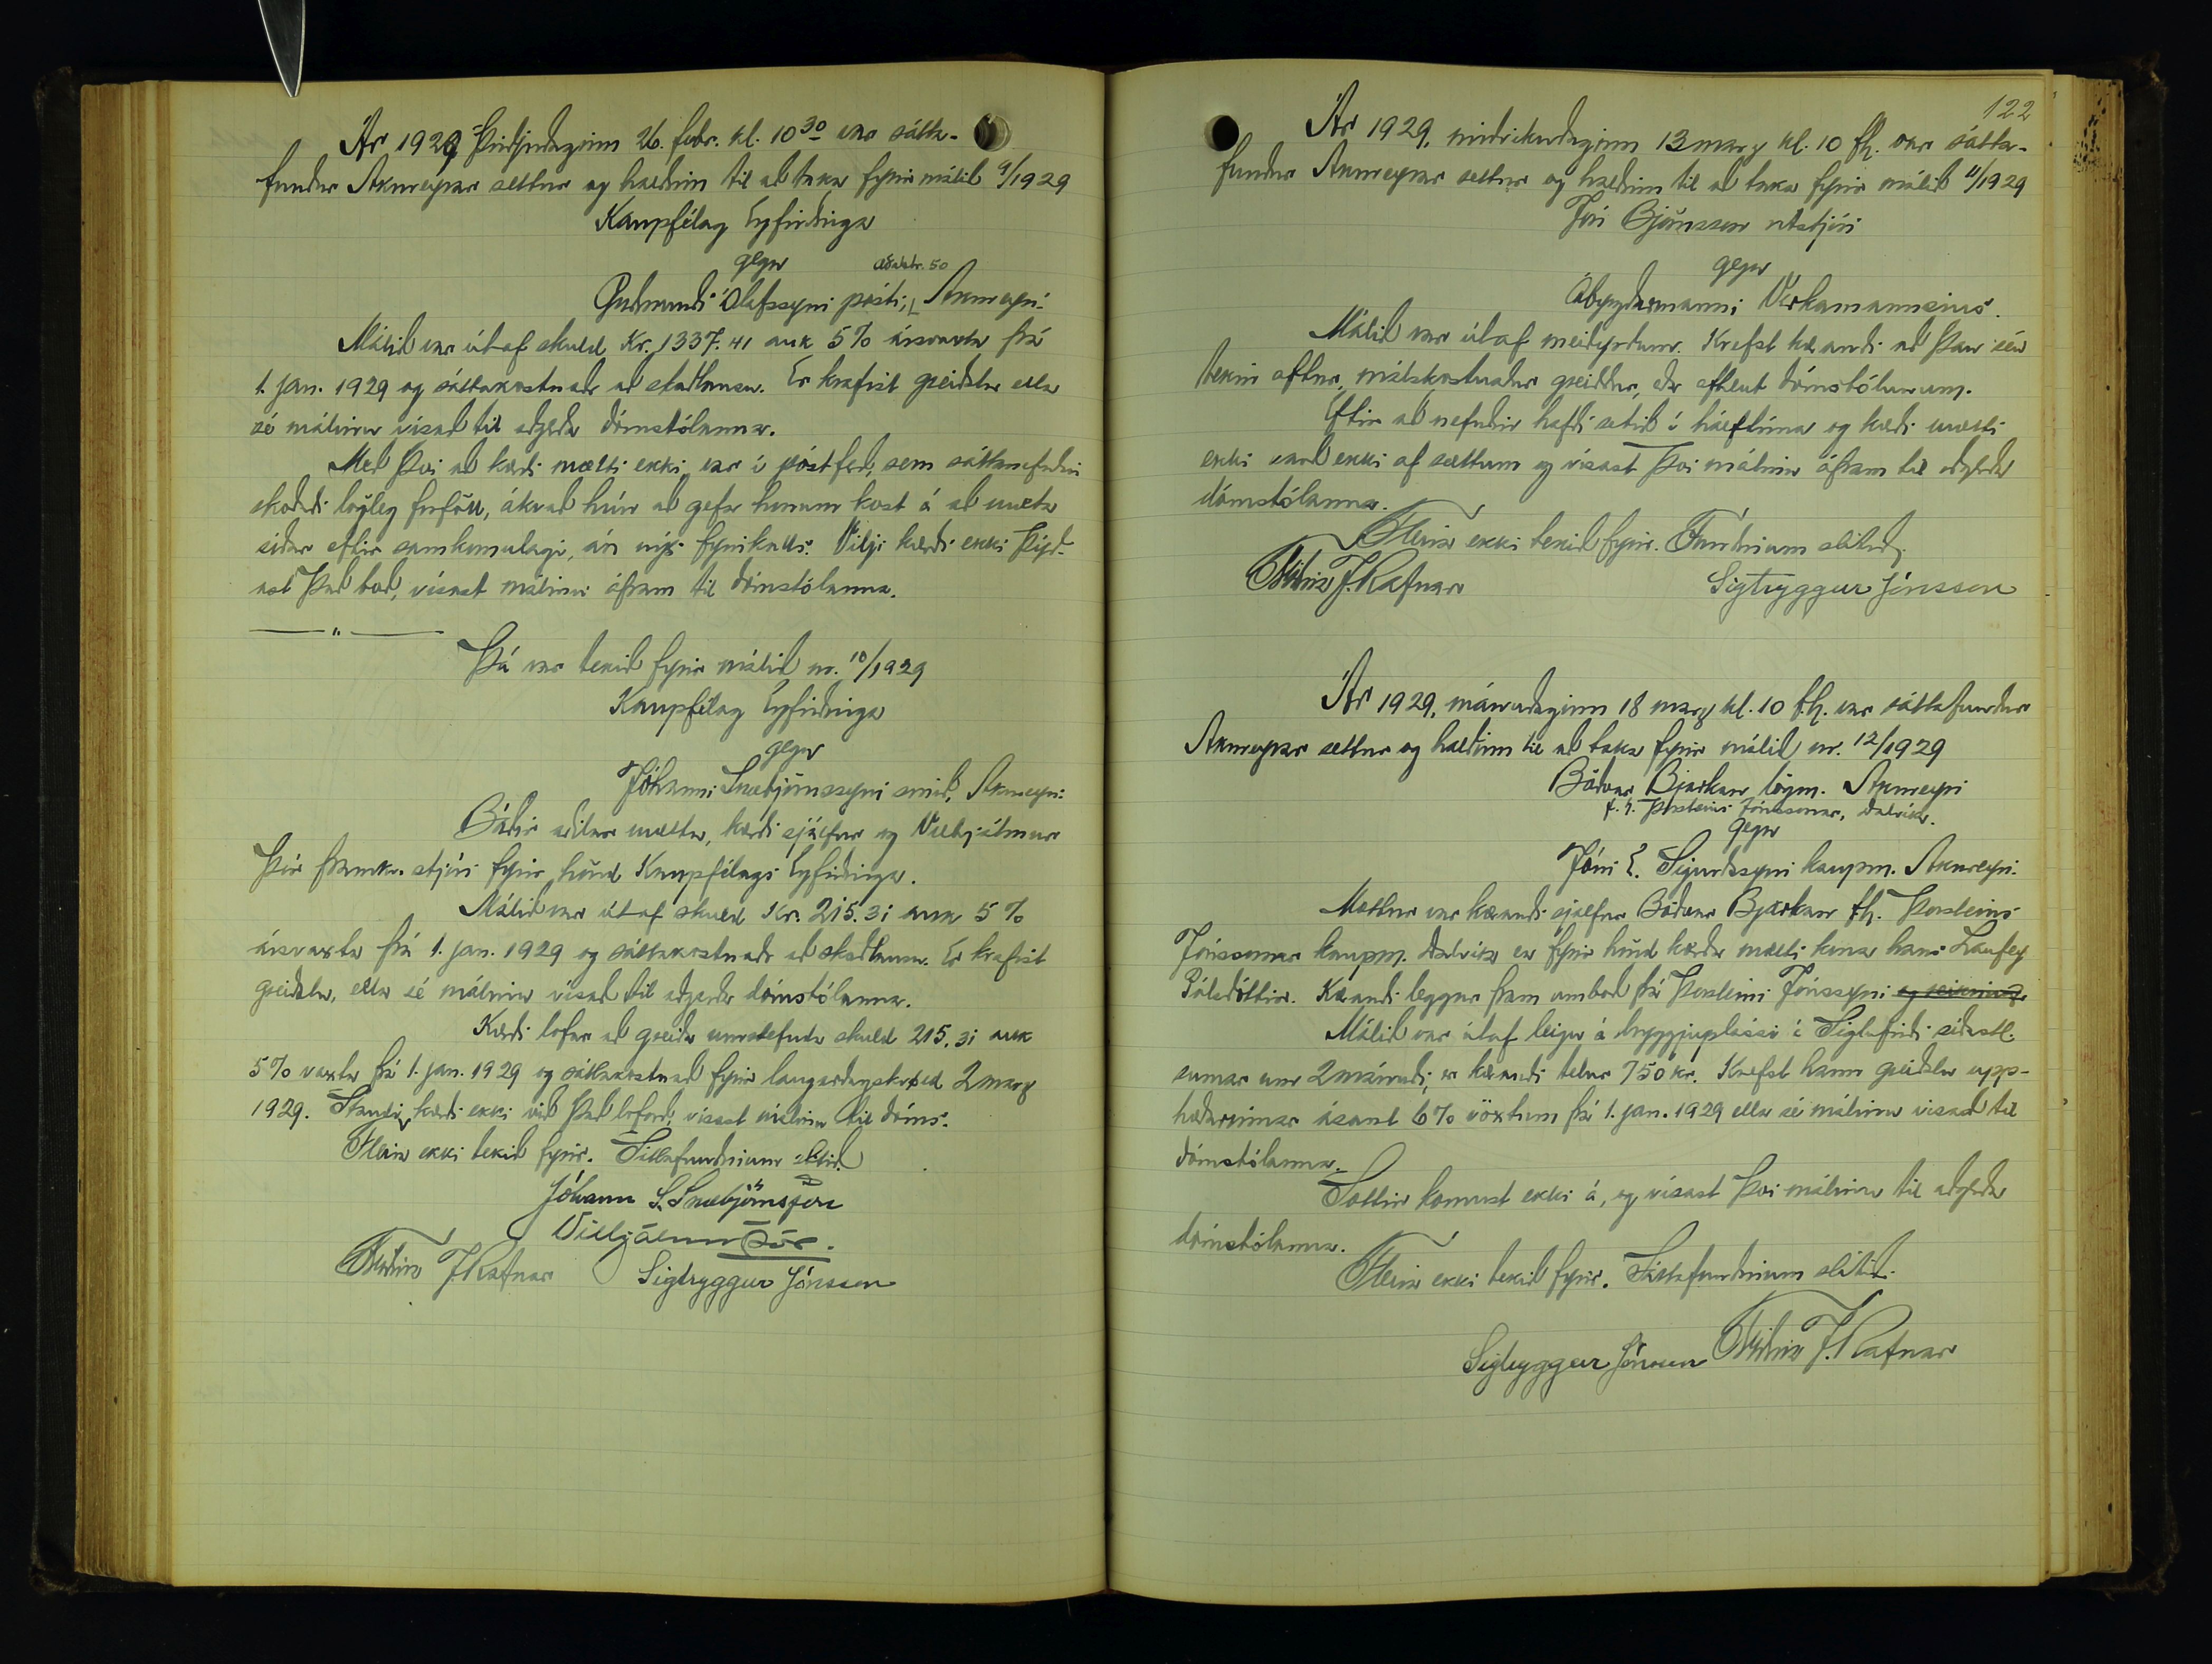 Ár 1929 Þriðjudaginn 26. febr. kl. 10 30 var sátta-
fundur Akureyrar settur og haldinn til að taka fyrir málið 9/1929
Kaupfélag Eyfirðinga
gegn
Aðalstr. 50
Guðmundi Ólafssyni pósti, Akureyri.
Málið var útaf skuld Kr. 1337.41 auk 5% ársvaxta frá
1. jan. 1929 og sáttakostnaðr að skaðlausu. Er krafist greiðslu ella
sé málinu vísað til aðgerða dómstólanna.
Með því að kærði mætti ekki, var í póstferð, sem sáttanefndin
skoðaði lögleg forföll, ákvað hún að gefa honum kost á að mæta
síðar eftir samkomulagi, án nýs fyrirkalls. Vilji kærði ekki þýð-
ast það boð, vísast málinu áfram til dómstólanna.
— " —
Þá var tekið fyrir málið nr. 10/1929
Kaupfélag Eyfirðinga
gegn
Jóhanni Snæbjörnssyni smið, Akureyri.
Báðir aðilar mættu, kærði sjálfur og Vilhjálmur
Þór framkv.stjóri fyrir hönd Kaupfélags Eyfirðinga.
Málið var útaf skuld Kr. 215.31 auk 5%
ársvaxta frá 1. jan. 1929 og sáttakostnaðr að skaðlausu. Er krafist
greiðslu, ella sé málinu vísað til aðgerða dómstólanna.
Kærði lofar að greiða umstefnda skuld 215.31 auk
5% vaxta frá 1. jan. 1929 og sáttakostnað fyrir laugardagskvöld 2 marz
1929. Standi kærði ekki við það loforð, vísast málinu til dóms.
Fleira ekki tekið fyrir. Sáttafundinum slitið
Jóhann S. Snæbjörnsson
Vilhjálmur Þór.
Friðrik J. Rafnar Sigtryggur Jónsson
122
Ár 1929, miðvikudaginn 13 marz kl. 10 fh. var sátta-
fundur Akureyrar settur og haldinn til að taka fyrir málið 11/1929
Jón Björnsson ritstjóri
gegn
Ábyrgðarmanni Verkamannsins.
Málið var útaf meiðyrðum. Krefst kærandi að þau séu
tekin aftur, málskostnaður greiddur, eða afhent dómstólunum.
Eftir að nefndin hafði setið í hálftíma og kærði mætti
ekki varð ekki af sættum og vísast því málinu áfram til aðgerða
dómstólanna.
Fleira ekki tekið fyrir. Fundinum slitið.
Friðrik J. Rafnar Sigtryggur Jónsson
Ár 1929, mánudaginn 18 marz kl. 10 f.h. var sáttafundur
Akureyrar settur og haldinn til að taka fyrir málið nr. 12/1929
Böðvar Bjarkan lögm. Akureyri
f. h. Þorsteins Jónssonar, Dalvík.
gegn
Jóni E. Sigurðssyni kaupm. Akureyri.
Mættur var kærandi sjálfur Böðvar Bjarkan fh. Þorsteins
Jónssonar kaupm. Dalvík en fyrir hönd kærða mætti kona hans Laufey
Pálsdóttir. Kærandi leggur fram umboð frá Þorsteini Jónssyni og reikning
Málið var útaf leigu á bryggjuplássi í Siglufirði síðastl.
sumar um 2 mánuði, er kærandi telur 750 kr. Krefst hann greiðslu upp-
hæðarinnar ásamt 6% vöxtum frá 1. jan. 1929 ella sé málinu vísað til
dómstólanna.
Sættir komust ekki á, og vísast því málinu til aðgerða
dómstólanna.
Fleira ekki tekið fyrir. Sáttafundinum slitið.
Sigtryggur Jónsson Friðrik J. Rafnar